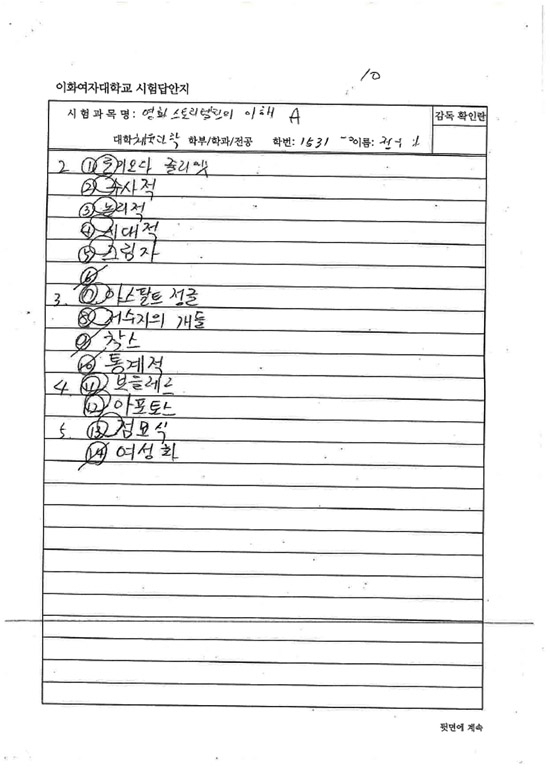 10
이화여자대학교 시험답안지
시험과목명: 영화스토리텔링의 이해 A
감독 확인란
대학 체육과학 학부/학과/전공 학번: 1531 이름:
2. ① 로미오와 줄리엣
② 수사적
③ 논리적
④ 시대적
⑤ 그림자
⑥
3. ⑦ 아스팔트 정글
⑧ 저수지의 개들
⑨ 착스
⑩ 통계적
4. ⑪ 보들레르
⑫ 아포토스
5. ⑬ 점묘식
⑭ 여성화
뒷면에 계속